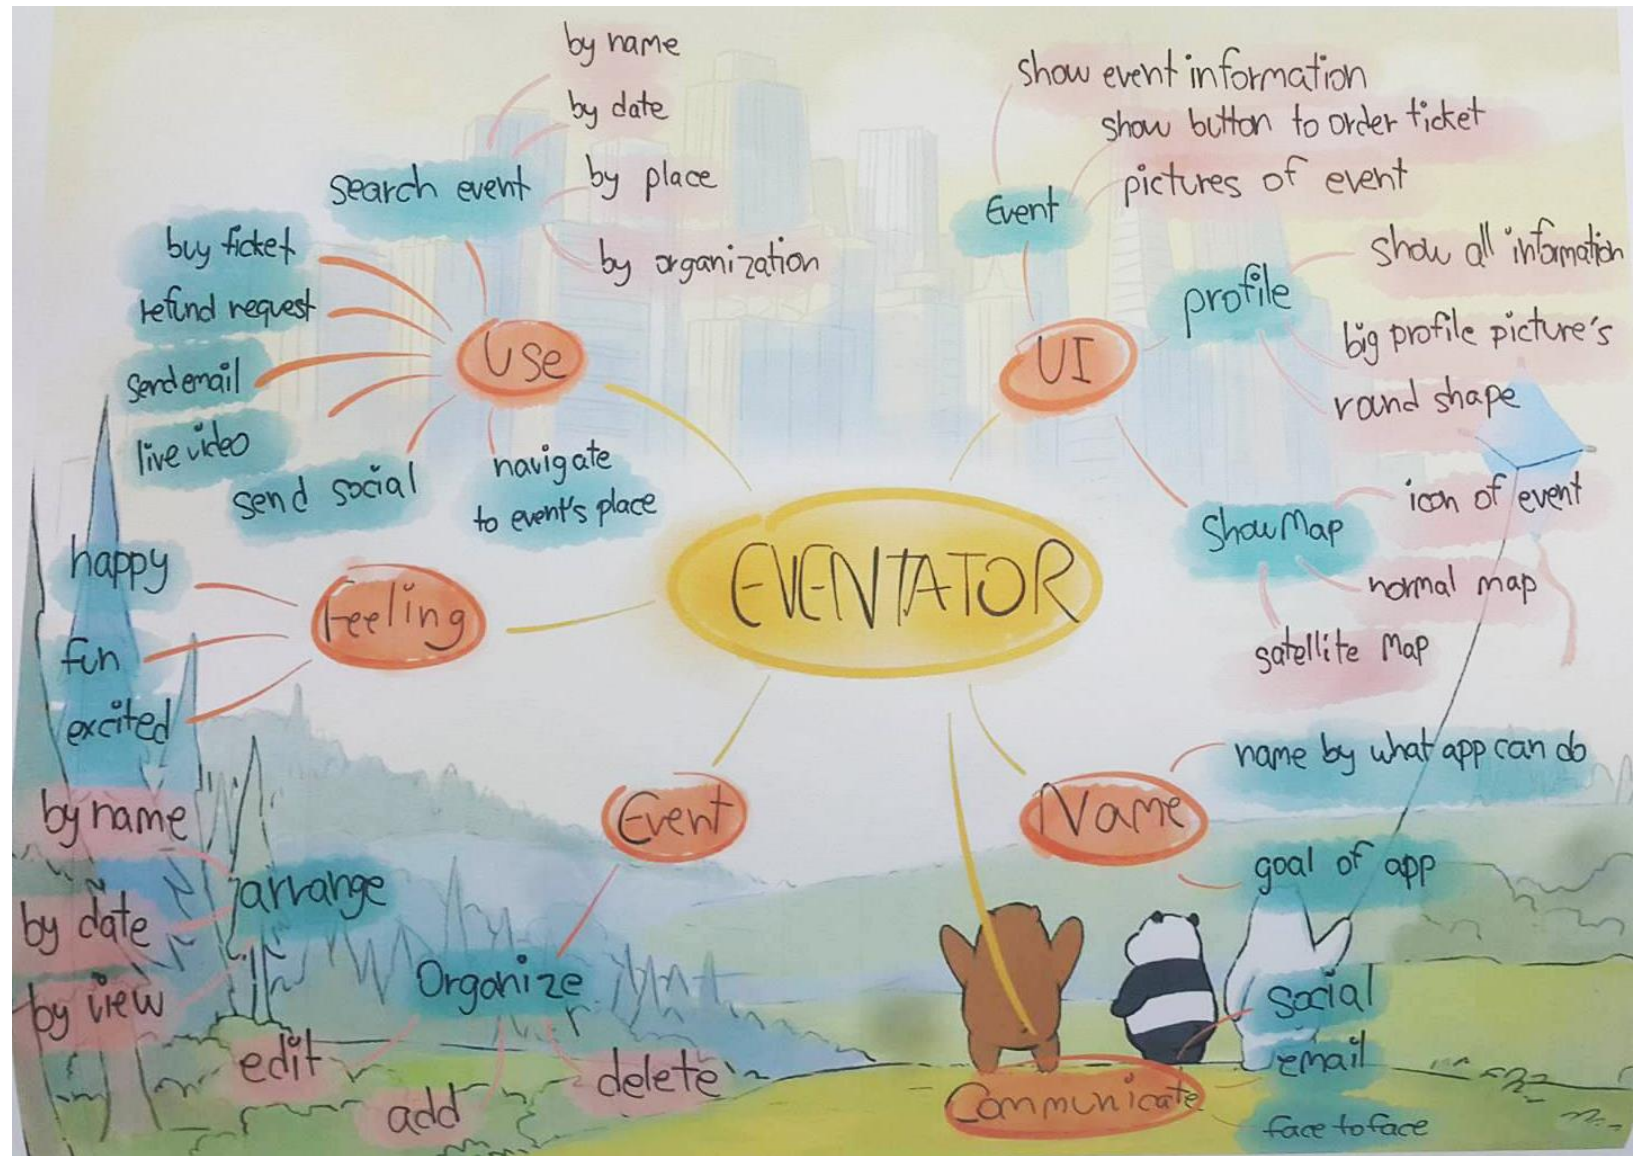 by name
by date
by place
by organization
search event
buy ticket
refund request
send email
live video
send social
navigate
to event's place
Use
show event information
show button to order ticket
pictures of event
Event
UI
profile
show all information
big profile picture's
round shape
Show Map
icon of event
normal map
satellite map
EVENTATOR
Feeling
happy
fun
excited
Event
arrange
by name
by date
by view
Organize
edit
add
delete
Name
name by what app can do
goal of app
Communicate
social
email
face to face